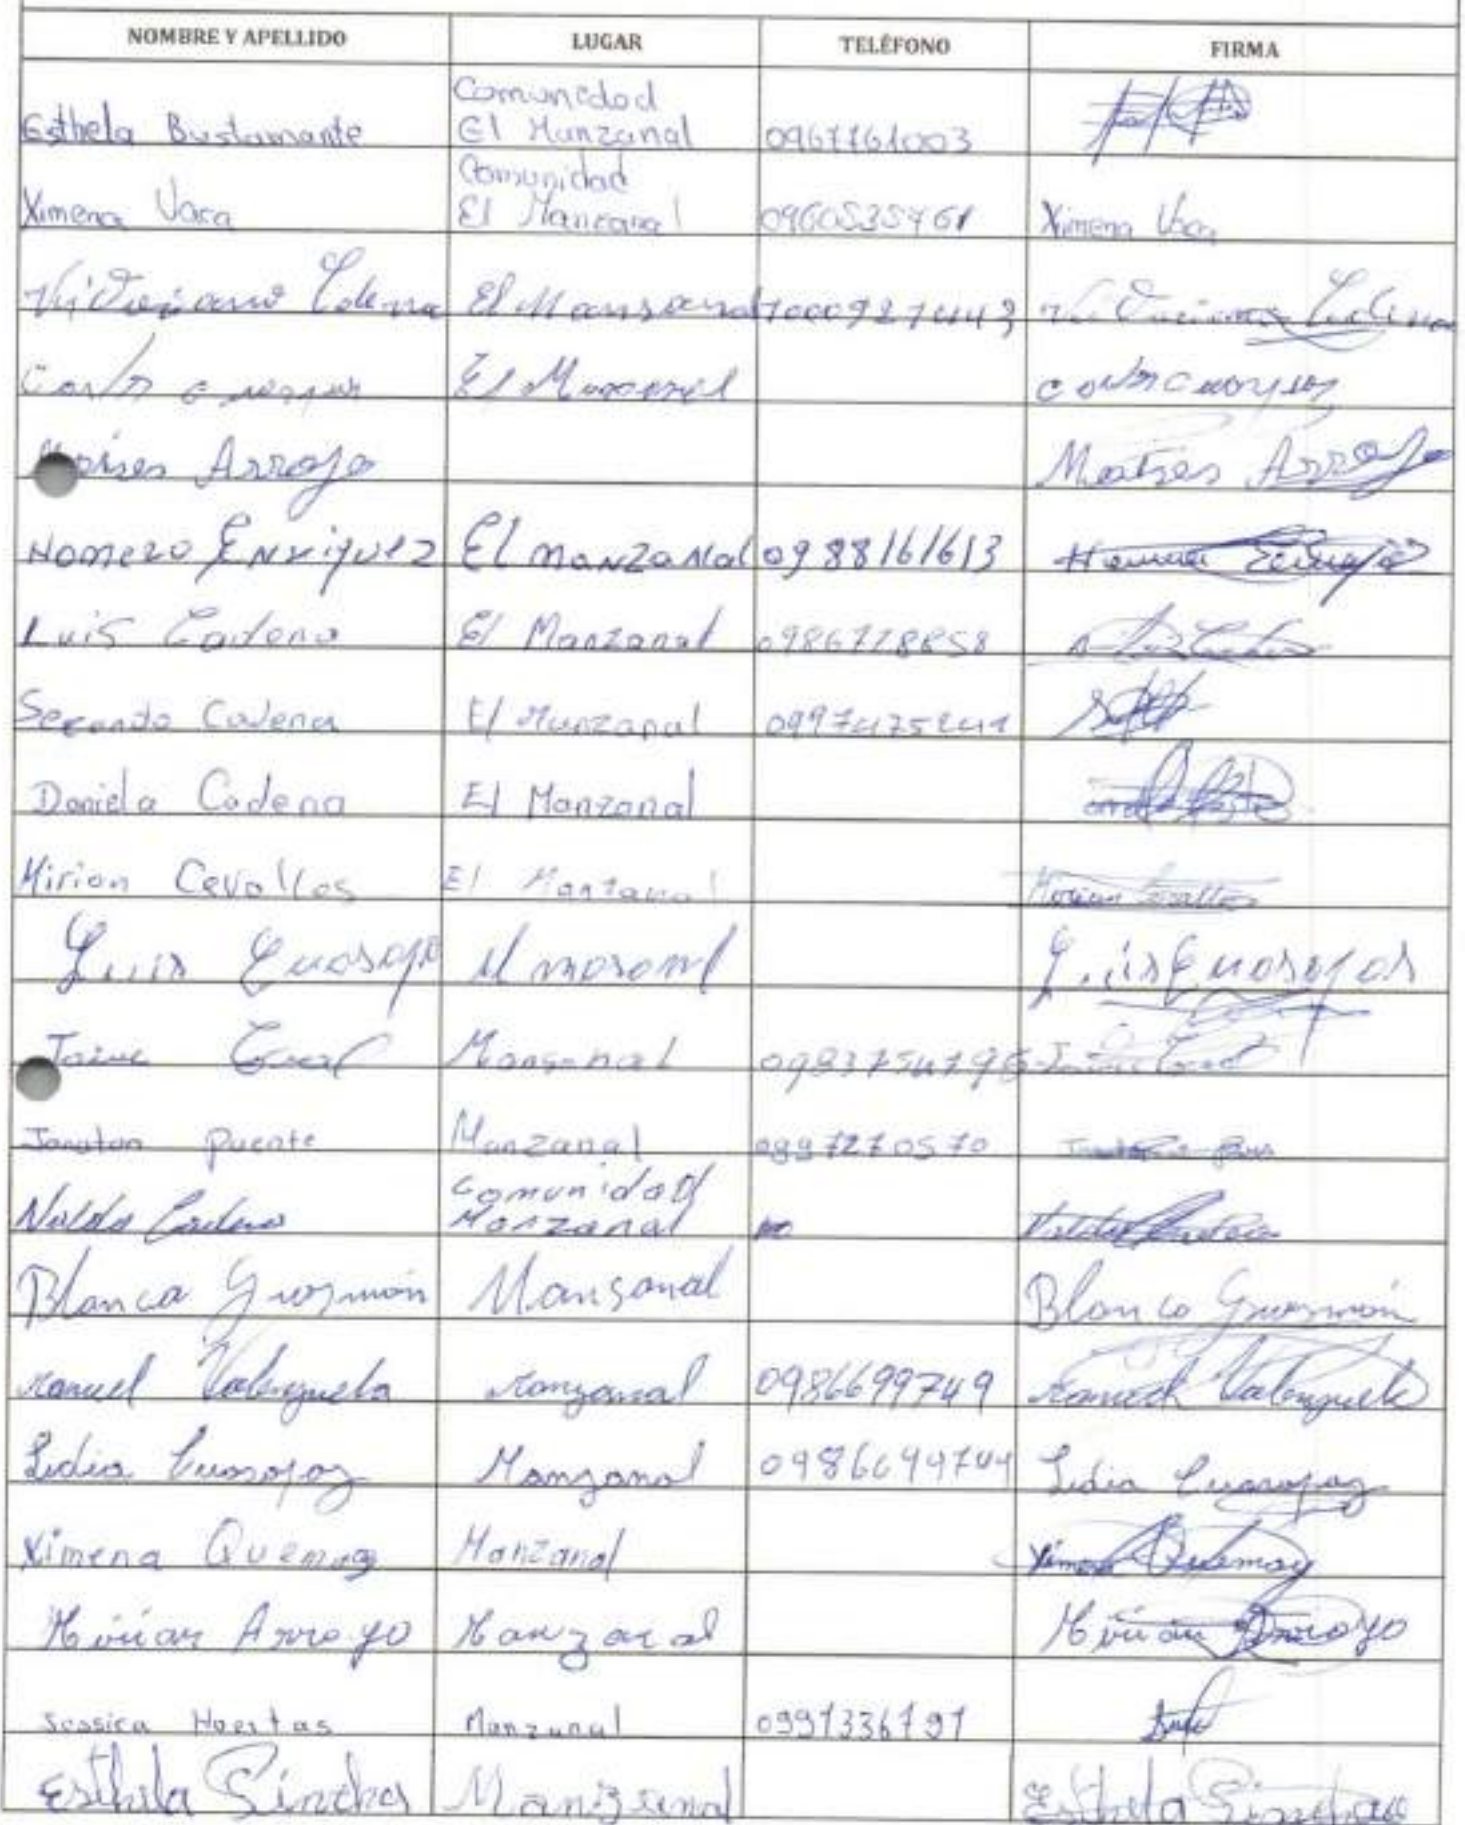 NOMBRE Y APELLIDO LUGAR TELÉFONO FIRMA
Esthela Bustamante Comunidad El Manzanal 0967761003
Ximena Vaca Comunidad El Manzanal 0960535761 Ximena Vaca
Victoriano Cadena El Mansanal 1000927443 Victoriano Cadena
Carlos El Manzanal
Moises Arroyo Moises Arroyo
Homero Enriquez El manzanal 0988161613 Homero Enriquez
Luis Cadena El Manzanal 0986778858 Luis Cadena
Segundo Cadena El Manzanal 0997475241
Daniela Cadena El Manzanal
Mirian Cevallos El Manzanal Mirian Cevallos
Luis Cuasapa El Luis Cuasapas
Jaime Coral Mansanal 0983754796 Jaime Coral
Jonatan Puente Manzanal 0997270570
Nalda Cadena Comunidad Manzanal no
Blanca Guzmán Mansanal Blanca Guzmán
Manuel Valenzuela Manzanal 0986699749 Manuel Valenzuela
Lidia Cuasapaz Manzanal 0986699749 Lidia Cuasapaz
Ximena Quemag Manzanal Ximena Quemag
Mirian Arroyo Manzanal Mirian Arroyo
Jessica Huertas Manzanal 0991336791
Esthela Sinchez Manizanal Esthela